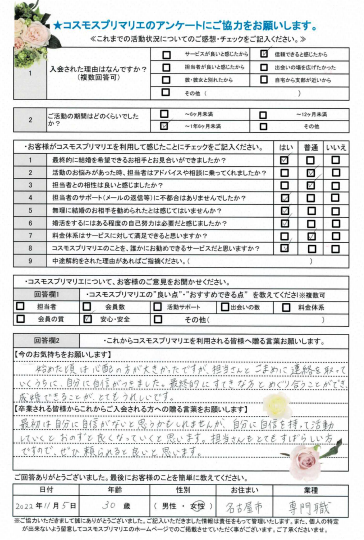 ★コスモスプリマリエのアンケートにご協力をお願いします。
≪これまでの活動状況についてのご感想・チェックをご記入ください。≫
1 入会された理由はなんですか？(複数回答可)
サービスが良いと感じたから 信頼できると感じたから
担当者が良いと感じたから 出会いの場を広げたかった
親・彼女と別れたから 自宅から支部が近いから
その他( )
2 ご活動の期間はどのくらいでしたか？
～6ヶ月未満 ～12ヶ月未満
～1年6ヶ月未満 その他
・お客様がコスモスプリマリエを利用して感じたことにチェックをご記入ください。 はい 普通 いいえ
1 最終的に結婚を希望できるお相手とお見合いができましたか？
2 活動のお悩みがあった時、担当者はアドバイスや相談に乗ってくれましたか？
3 担当者との相性は良いと感じましたか？
4 担当者のサポート(メールの返信等)に不都合はありませんでしたか？
5 無理に結婚のお相手を勧められたとは感じてはいませんか？
6 婚活をするにはある程度の自己努力は必要だと感じましたか？
7 料金体系はサービスに対して満足できると思いますか？
8 コスモスプリマリエのことを、誰かにお勧めできるサービスだと思いますか？
9 中途解約された理由があればご指摘ください。( )
・コスモスプリマリエについて、お客様のご意見をお聞かせください。
回答欄1 ・コスモスプリマリエの"良い点"・"おすすめできる点" を教えてください※複数可
担当者 会員数 活動サポート 出会いの数 料金体系
会員の質 安心・安全 その他( )
回答欄2 ・これからコスモスプリマリエを利用される皆様へ贈る言葉お願いします。
【今のお気持ちをお願いします】
始めた頃は心配の方が大きかったですが、担当さんとこまめに連絡を取って
いくうちに、自分に自信がつきました。最終的にすてきな方とめぐり合うことができ、
成婚できることが、とてもうれしいです。
【卒業される皆様からこれからご入会される方への贈る言葉をお願いします】
最初は自分に自信がないと思うかもしれませんが、自分に自信を持って活動
していくと、おのずと良くなっていくと思います。担当さんもとてもすばらしい方
ですので、ぜひ頼られると良いと思います。
ご回答ありがとうございました。最後にお客様のことを簡単に教えてください。
日付 年齢 性別 お住まい 業種
2022年11月5日 30歳 (男性・女性) 名古屋市 専門職
※ご協力いただきまして誠にありがとうございました。ご記入いただきました情報は責任をもって管理いたします。また、個人の特定
が出来ないよう留意してコスモスプリマリエのホームページでのご掲載させていただく事がございます。ご了承くださいませ。